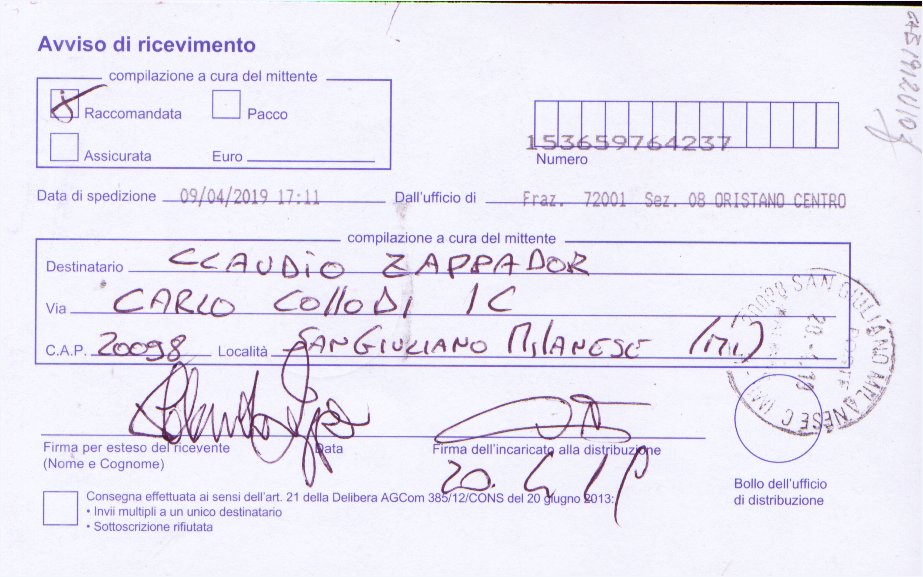 Avviso di ricevimento
compilazione a cura del mittente
Raccomandata
Pacco
Assicurata
Euro
153659764237
Numero
Data di spedizione 09/04/2019 17:11 Dall'ufficio di Fraz. 72001 Sez. 08 ORISTANO CENTRO
compilazione a cura del mittente
Destinatario CLAUDIO ZAPPADOR
Via CARLO COLLODI 1C
C.A.P. 20098 Località SAN GIULIANO MILANESE (MI)
SAN GIULIANO MILANESE
Firma per esteso del ricevente Data Firma dell'incaricato alla distribuzione
(Nome e Cognome)
20.
Bollo dell'ufficio
di distribuzione
Consegna effettuata ai sensi dell'art. 21 della Delibera AGCom 385/12/CONS del 20 giugno 2013:
• Invii multipli a un unico destinatario
• Sottoscrizione rifiutata